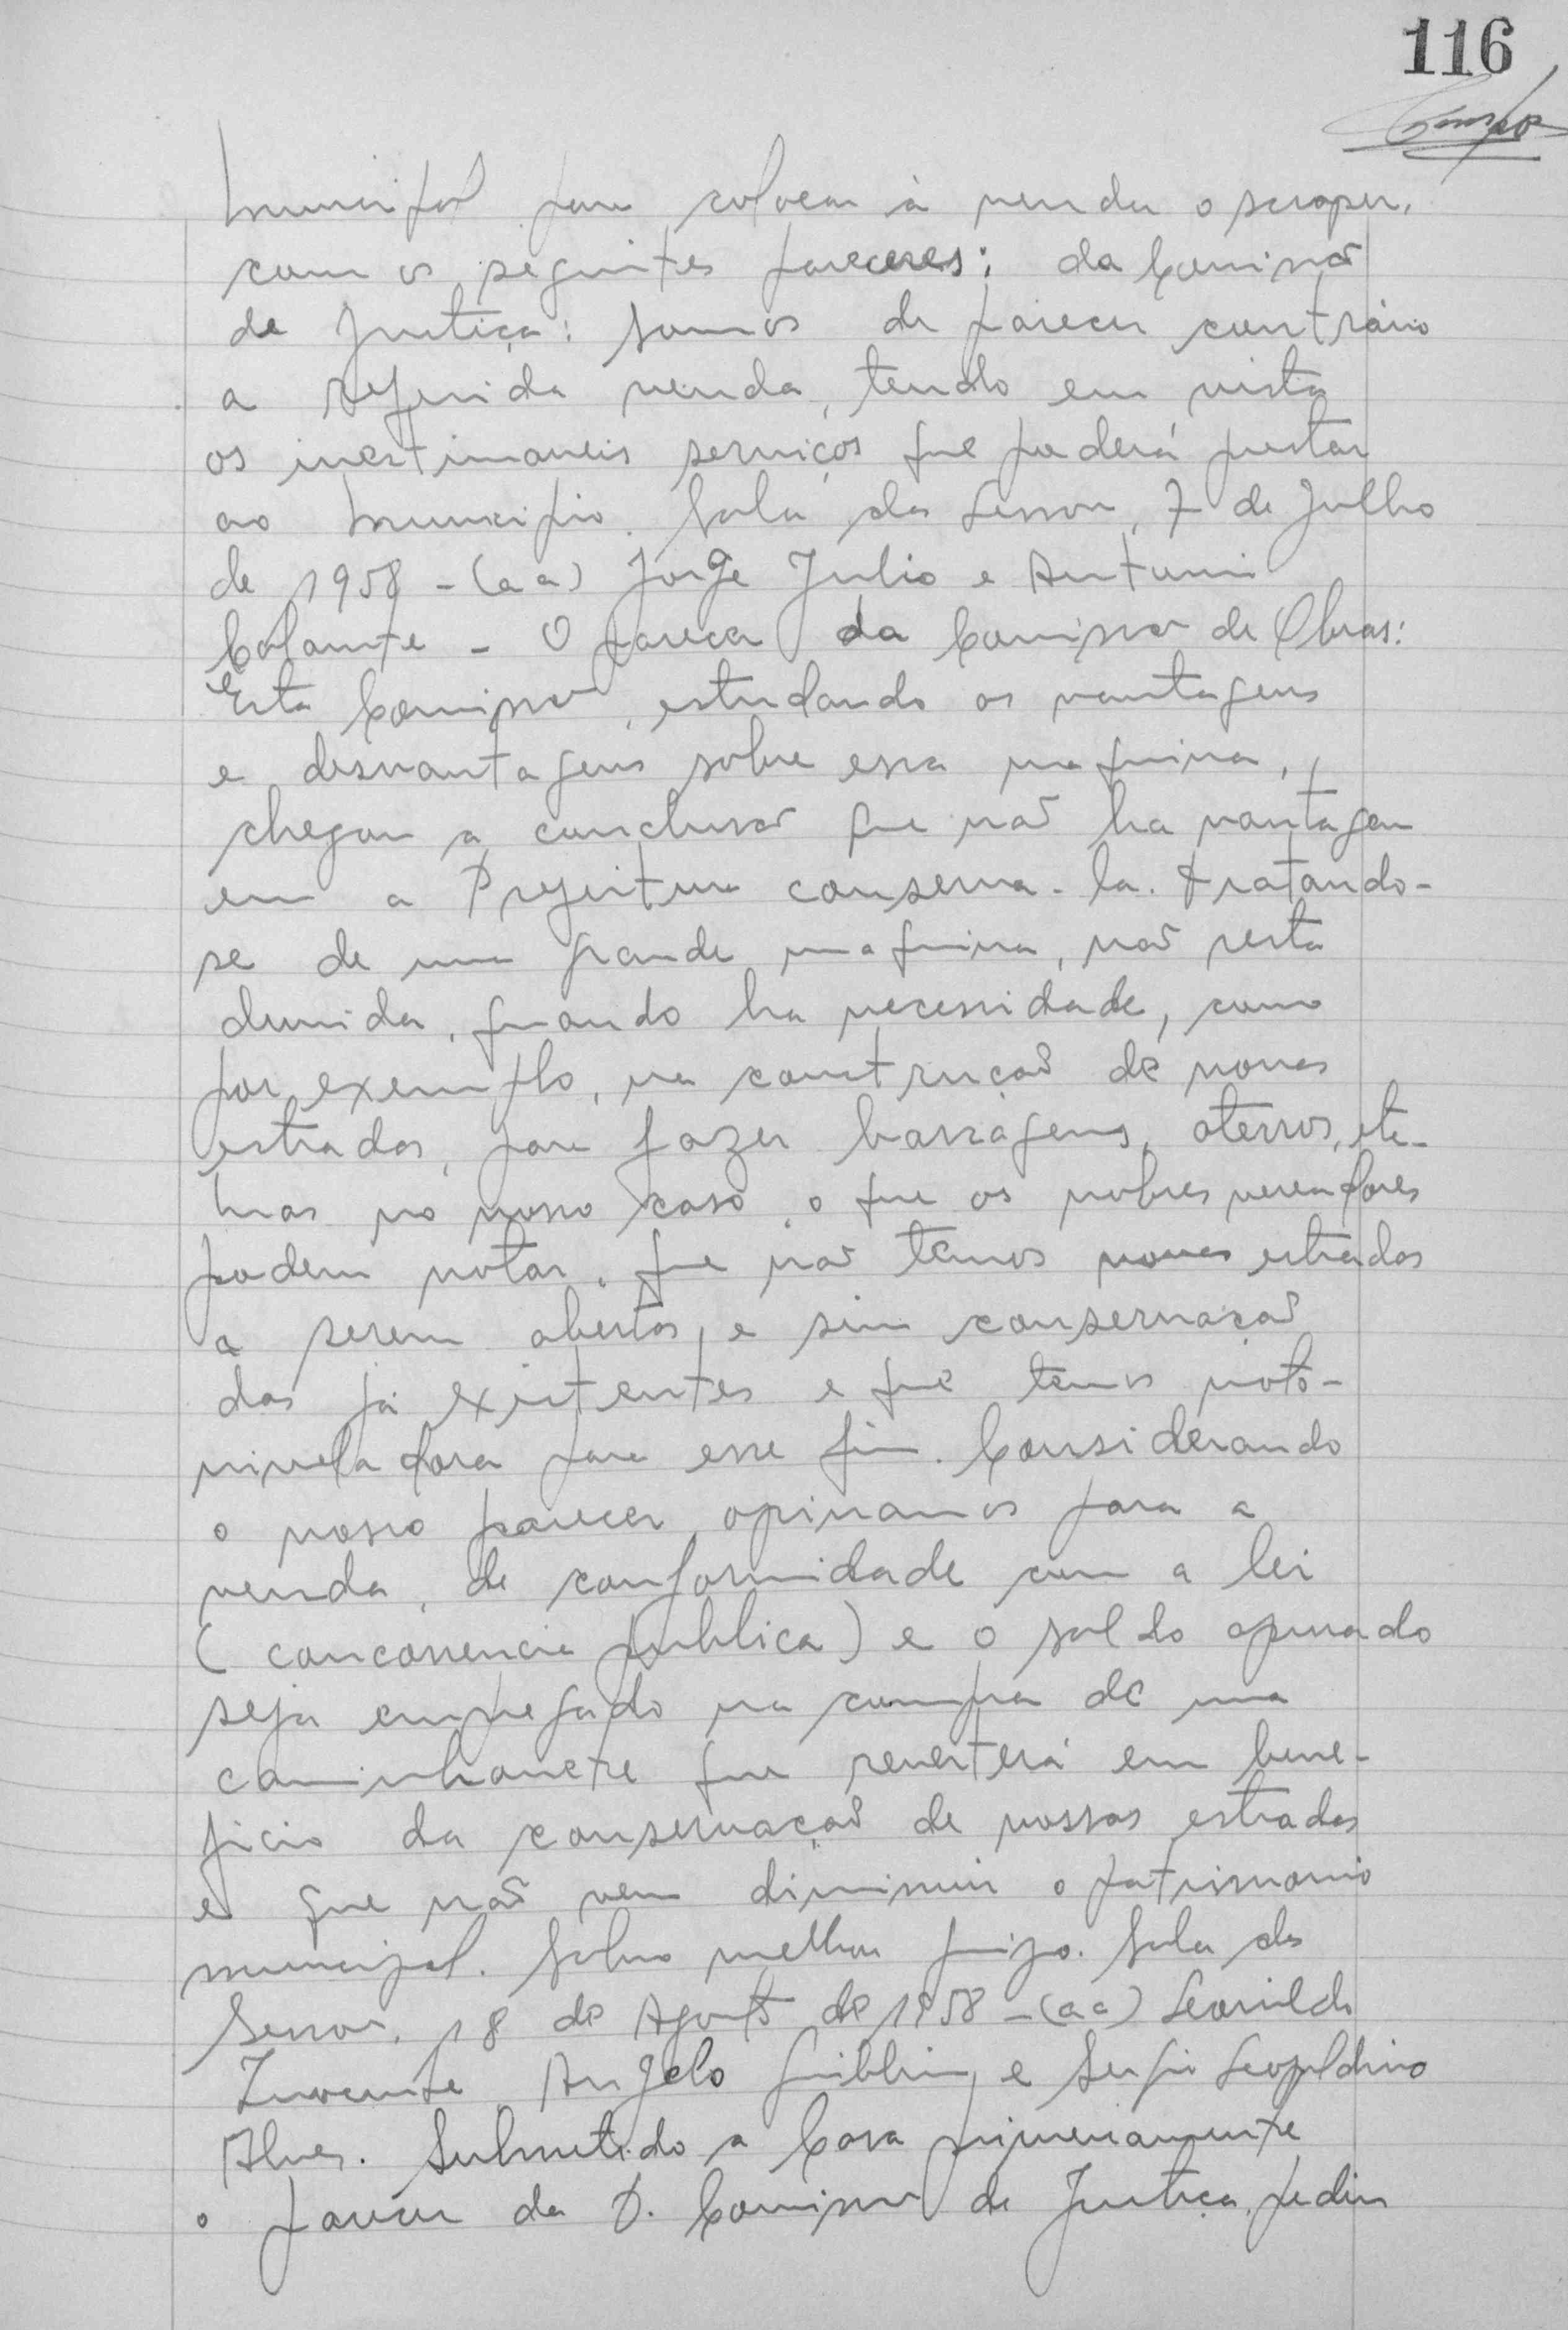 116
Campos
Municipal para colocar à venda o scraper,
com os seguintes pareceres: da Comissão
de Justiça: Somos de parecer contrário
a referida venda, tendo em vista
os inestimaveis serviços que poderá prestar
ao Municipio. Sala das Sessões, 7 de Julho
de 1958 - (aa) Jorge Julio e Antonio
Colante - O parecer da Comissão de Obras:
Esta Comissão, estudando as vantagens
e desvantagens sobre essa maquina,
chegou a conclusão que não ha vantagem
em a Prefeitura conserva-la. Tratando-
se de uma grande maquina, não resta
duvida, quando ha necessidade, como
por exemplo, na construção de novas
estradas, para fazer barragens, aterros, etc-
mas no nosso caso, o que os nobres vereadores
podem notar, que não temos novas estradas
a serem abertas, e sim conservação
das já existentes e que temos moto-
niveladora para esse fim. Considerando
o nosso parecer, opinamos para a
venda, de conformidade com a lei
(concorrencia publica) e o saldo apurado
seja empregado na compra de uma
caminhonete que reverterá em bene-
ficio da conservação de nossas estradas
e que não vem diminuir o patrimonio
municipal. Salvo melhor juizo. Sala das
Sessões, 18 de Agosto de 1958 - (aa) Leonildo
Inocente, Angelo e Sergio Leopoldino
Alves. Submetido a Casa primeiramente
o parecer da D. Comissão de Justiça, pediu